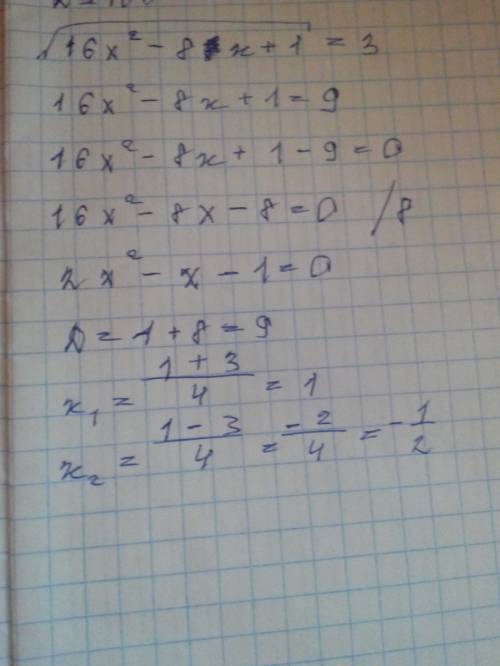 √(16x² - 8x + 1) = 3
16x² - 8x + 1 = 9
16x² - 8x + 1 - 9 = 0
16x² - 8x - 8 = 0 /8
2x² - x - 1 = 0
D = 1 + 8 = 9
x₁ = (1 + 3)/4 = 1
x₂ = (1 - 3)/4 = -2/4 = -1/2